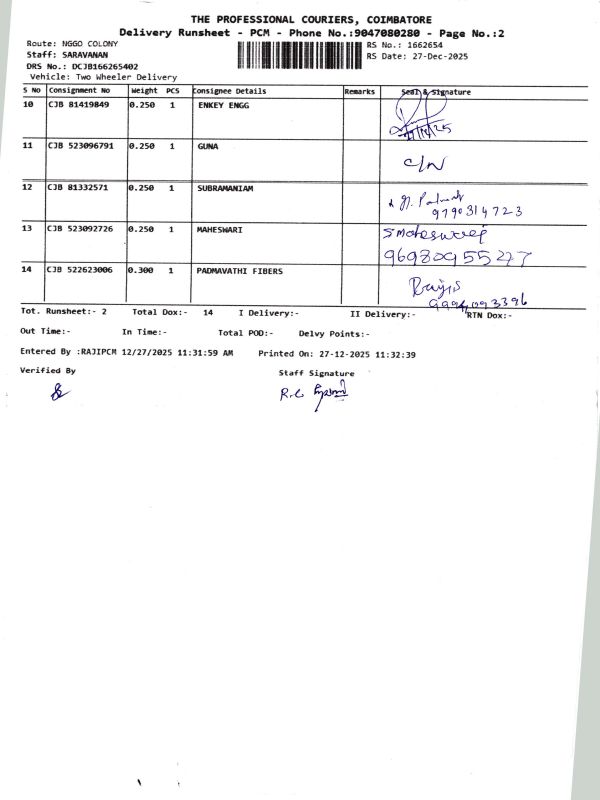 THE PROFESSIONAL COURIERS, COIMBATORE
Delivery Runsheet - PCM - Phone No.:9047080280 - Page No.:2
Route: NGGO COLONY RS No.: 1662654
Staff: SARAVANAN RS Date: 27-Dec-2025
DRS No.: DCJB166265402
Vehicle: Two Wheeler Delivery
S No Consignment No Weight PCS Consignee Details Remarks Seal & Signature
10 CJB 81419849 0.250 1 ENKEY ENGG
11 CJB 523096791 0.250 1 GUNA C/N
12 CJB 81332571 0.250 1 SUBRAMANIAM
9790314723
13 CJB 523092726 0.250 1 MAHESWARI S Maheswari
9698095527
14 CJB 522623006 0.300 1 PADMAVATHI FIBERS
9994093396
Tot. Runsheet:- 2 Total Dox:- 14 I Delivery:- II Delivery:- RTN Dox:-
Out Time:- In Time:- Total POD:- Delvy Points:-
Entered By :RAJIPCM 12/27/2025 11:31:59 AM Printed On: 27-12-2025 11:32:39
Verified By Staff Signature